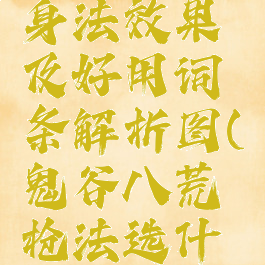 身法效果
及好用词
条解析图(
鬼谷八荒
枪法选什